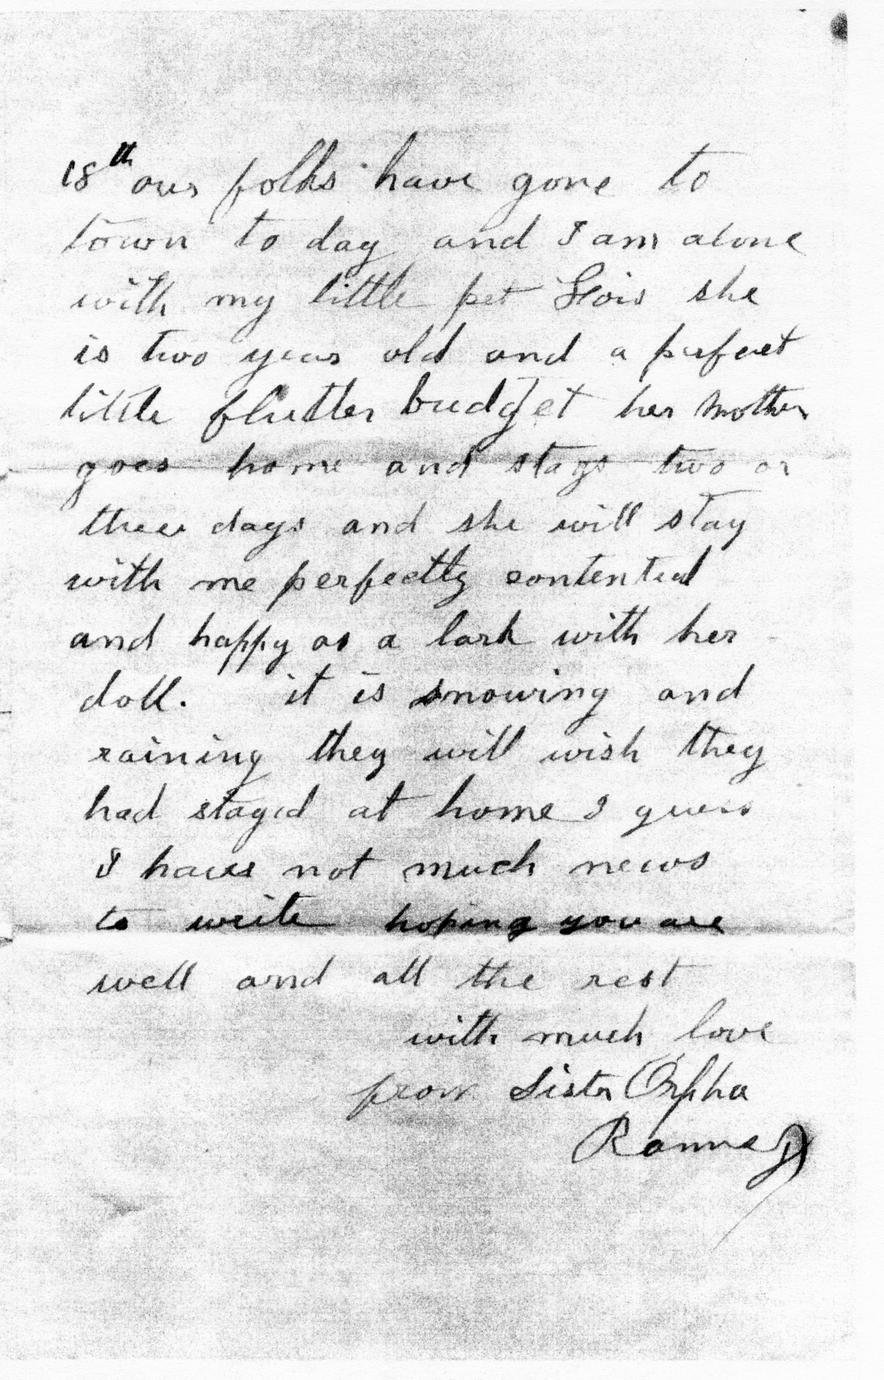 18th our folks have gone to
town to day and I am alone
with my little pet Lois she
is two years old and a perfect
little flutter budget her Mother
goes home and stays two or
three days and she will stay
with me perfectly contented
and happy as a lark with her
doll. it is snowing and
raining they will wish they
had stayed at home I guess
I have not much news
to write hoping you are
well and all the rest
with much love
from Sister Orpha
Ranney